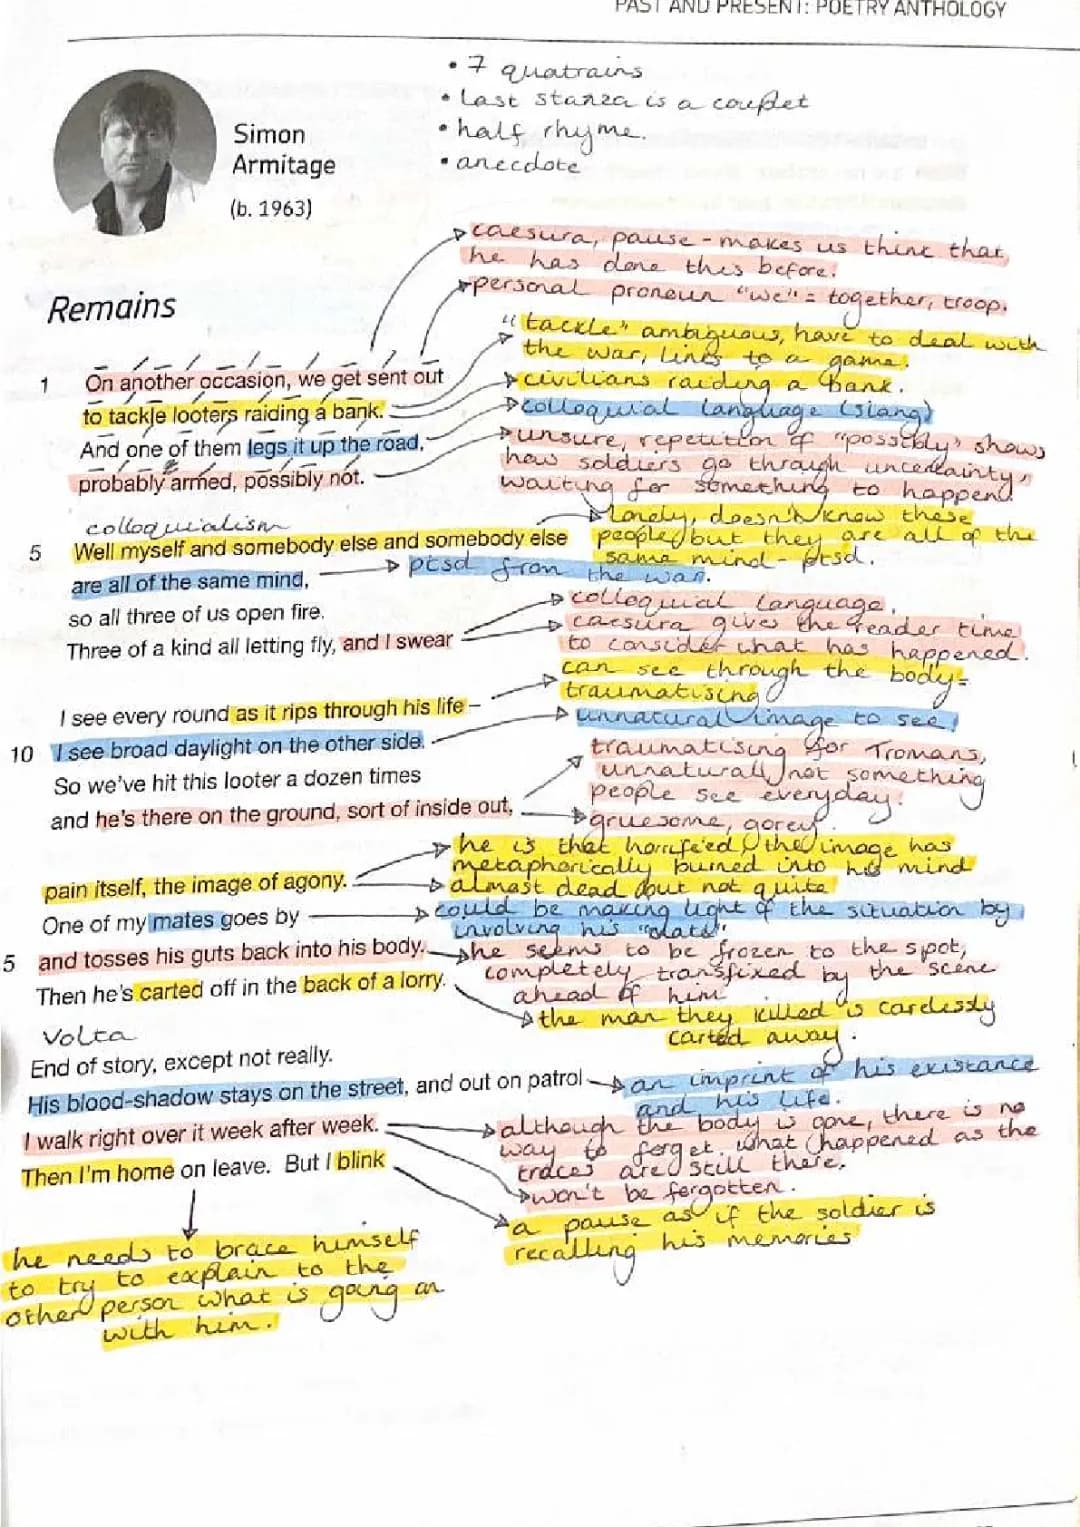 PAST AND PRESENT: POETRY ANTHOLOGY
• 7 quatrains
• last stanza is a couplet
• half rhyme.
• anecdote
Simon
Armitage
(b. 1963)
caesura, pause - makes us think that
he has done this before.
personal pronoun "we" = together, troop.
Remains
"tackle" ambiguous, have to deal with
the war, links to a game.
1 On another occasion, we get sent out
civilians raiding a bank.
to tackle looters raiding a bank.
colloquial language (slang)
And one of them legs it up the road,
unsure, repetition of "possibly" shows
how soldiers go through uncertainty,
waiting for something to happen.
probably armed, possibly not.
colloquialism
lonely, doesn't know these
people but they are all of the
same mind - ptsd.
5 Well myself and somebody else and somebody else
ptsd from the war.
are all of the same mind,
so all three of us open fire.
colloquial language.
caesura gives the reader time
to consider what has happened.
Three of a kind all letting fly, and I swear
can see through the body -
traumatising
I see every round as it rips through his life –
unnatural image to see
10 I see broad daylight on the other side.
traumatising for Tromans,
unnatural, not something
people see everyday.
So we've hit this looter a dozen times
and he's there on the ground, sort of inside out,
gruesome, gorey.
he is that horrified, the image has
metaphorically burned into his mind
almost dead but not quite
pain itself, the image of agony.
could be making light of the situation by
involving his "mate"
One of my mates goes by
he seems to be frozen to the spot,
completely transfixed by the scene
ahead of him
5 and tosses his guts back into his body.
Then he's carted off in the back of a lorry.
the man they killed is carelessly
carted away.
Volta
End of story, except not really.
an imprint of his existance
and his life.
His blood-shadow stays on the street, and out on patrol
although the body is gone, there is no
way to forget what happened as the
traces are still there.
I walk right over it week after week.
won't be fergotten.
Then I'm home on leave. But I blink
a pause as if the soldier is
recalling his memories
he needs to brace himself
to try to explain to the
other person what is going on
with him.